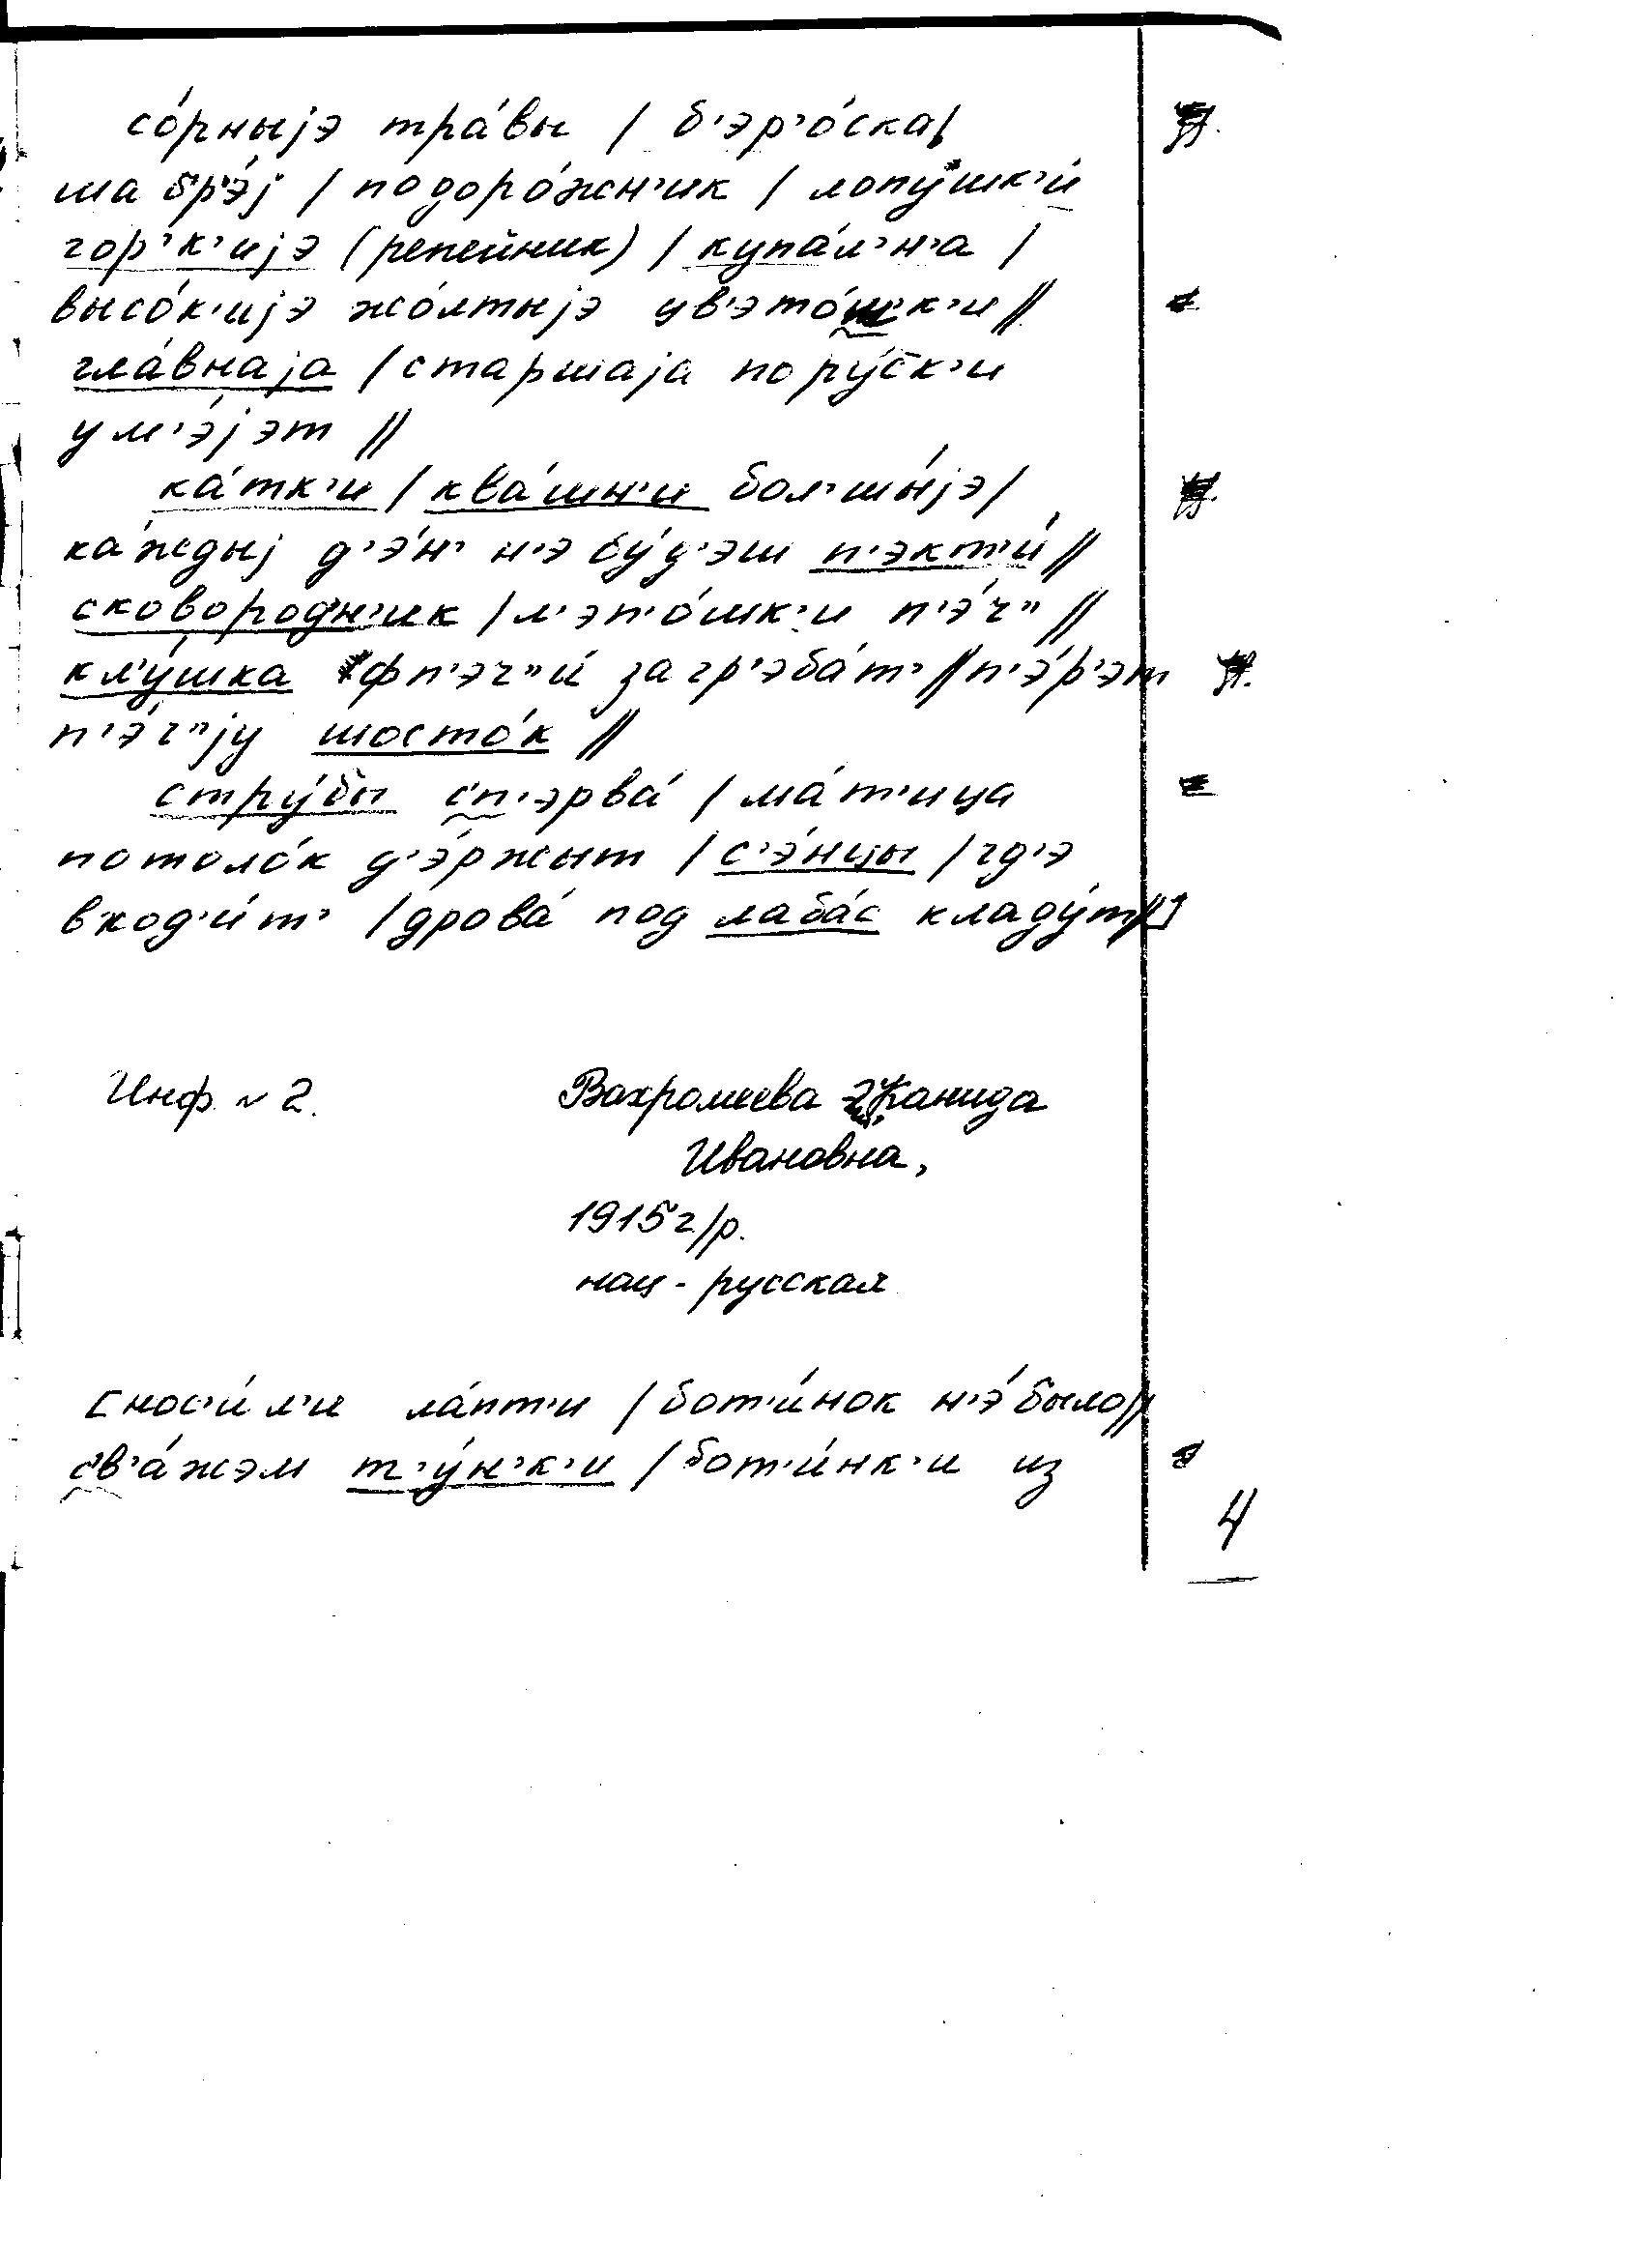 со́рныjэ тра́вы / б'эр'о́ска/
шабр'э́j / подоро́жн'ик / лопушк'и́
гор'к'иjэ (репейник) / купа́л'н'а /
высо́к'иjэ жо́лтыjэ цв'это́шк'и //
гла́внаjа / старшаjа по ру́ск'и
ум'э́jэт //
ка́тк'и / ква́шн'и бол'шы́jэ /
ка́ждыj д'э́н' н'э бу́д'эш п'экт'и́ //
сковородн'ик / л'эп'о́шк'и п'э́ч" //
кл'у́шка фп'эч"и́ загр'эба́т' // п'э́р'эт
п'э́ч"jу шосто́к //
стру́бы с'п'эрва́ / ма́т'ица
потоло́к д'э́ржыт / с'э́нцы / гд'э
вход'и́т' / дрова́ под лаба́с кладу́т//]
Инф. N 2.
Вахромеева Канида
Ивановна,
1915 г/р.
нац - русская
[нос'и́л'и ла́пт'и / бот'и́нок н'э́ было//
с'в'а́жэм т'у́н'к'и / бот'и́нк'и из
4